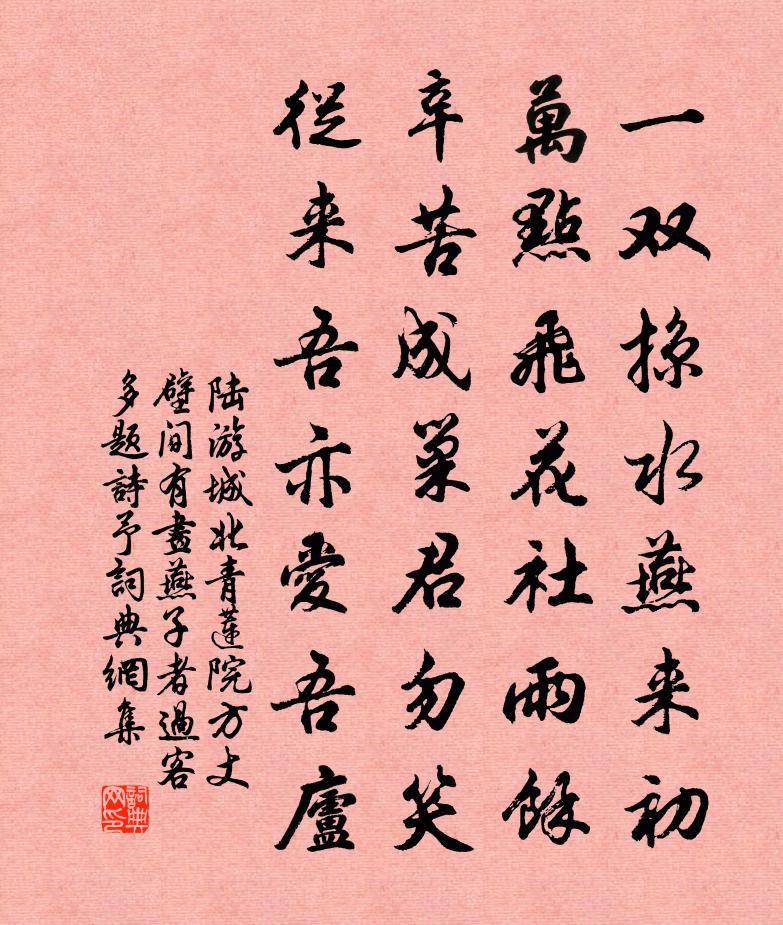 一双掠水燕来初
萬點飛花社雨餘
辛苦成巢君勿笑
從来吾亦愛吾廬
陆游城北青蓮院方丈
壁间有畫燕子者過客
多题詩予詞典網集
詞典网印